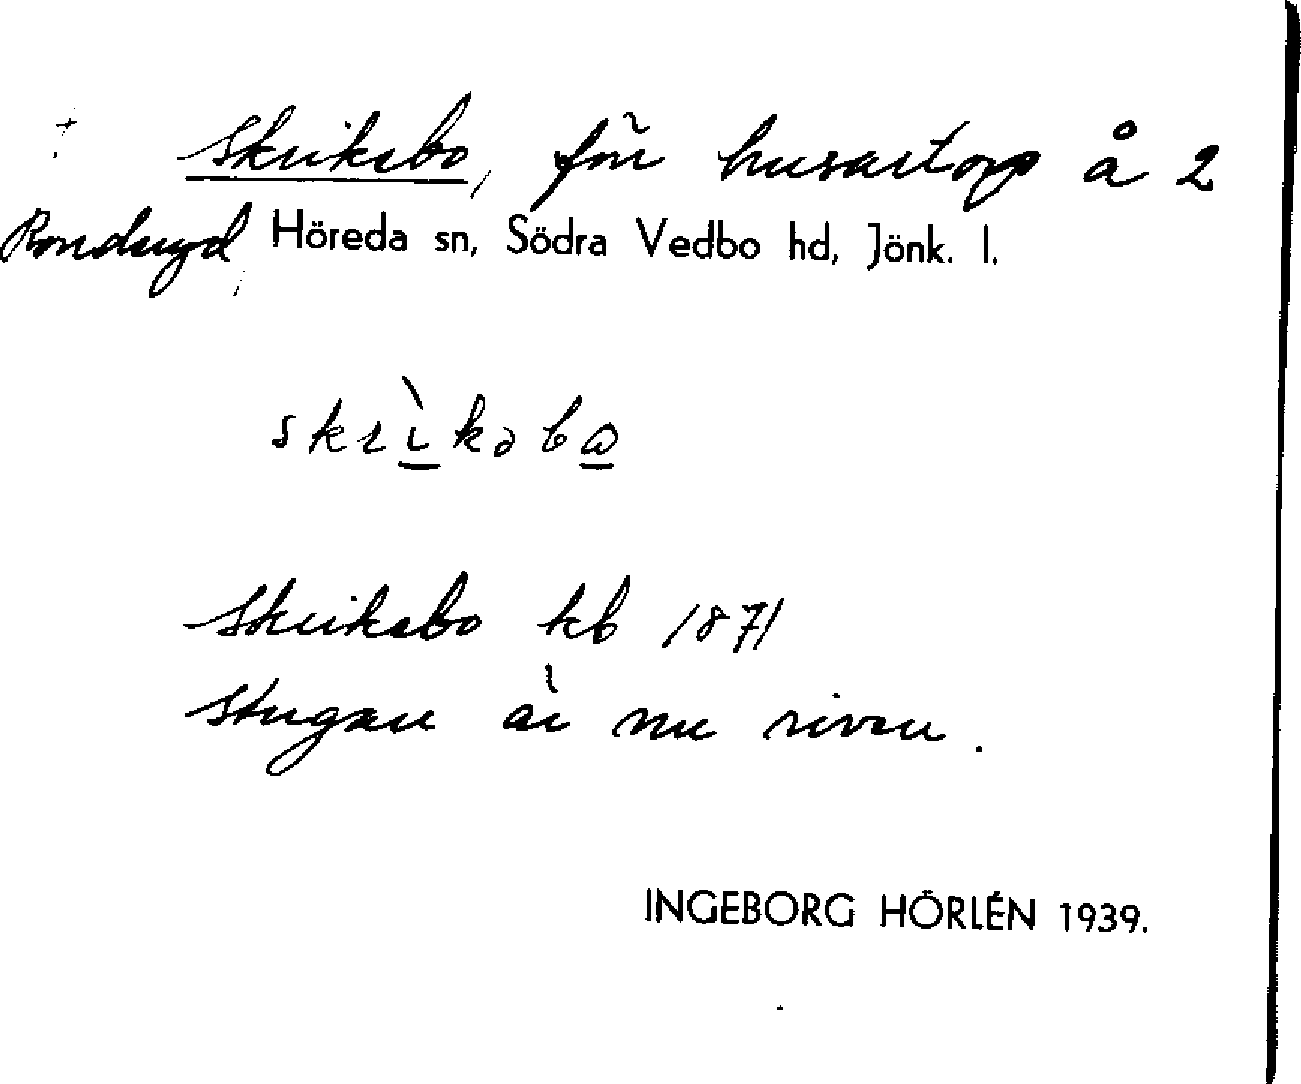 Skrikebo, för husartorp å 2
Höreda sn, Södra Vedbo hd, Jönk. l.
skrìkəbω
Skrikebo kb 1871
Stugan är nu riven.
INGEBORG HÖRLÉN 1939.